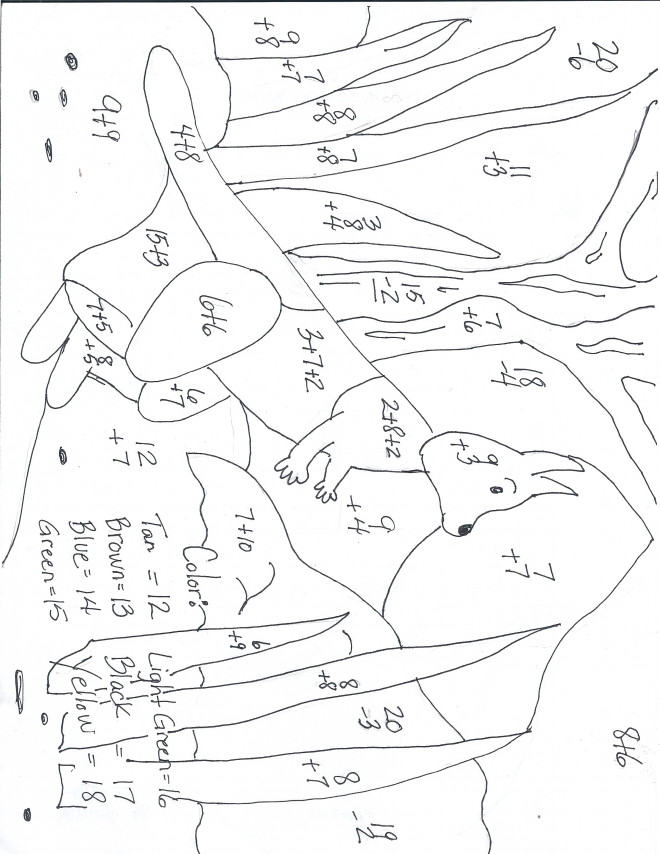 20
-6
8+6
11
+3
18
-4
7
+7
9
+3
7
+6
15
-2
2+8+2
20
-3
19
-2
3
8
+4
9
+4
8
+8
7
+8
8
+8
8
+7
3+7+2
7
+7
9
+8
6
+9
7+10
6+6
4+8
6
+7
15+3
7+5
8
+5
9+9
12
+7
Color:
Tan = 12
Brown=13
Blue = 14
Green=15
Light Green=16
Black = 17
Yellow = 18